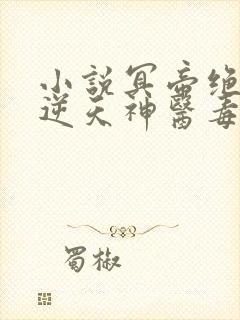 小說冥帝絕
逆天神醫毒
蜀椒